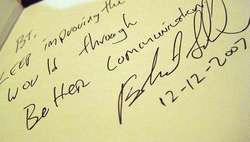 KEEP improving the
World through
Better Communication
12-12-2007